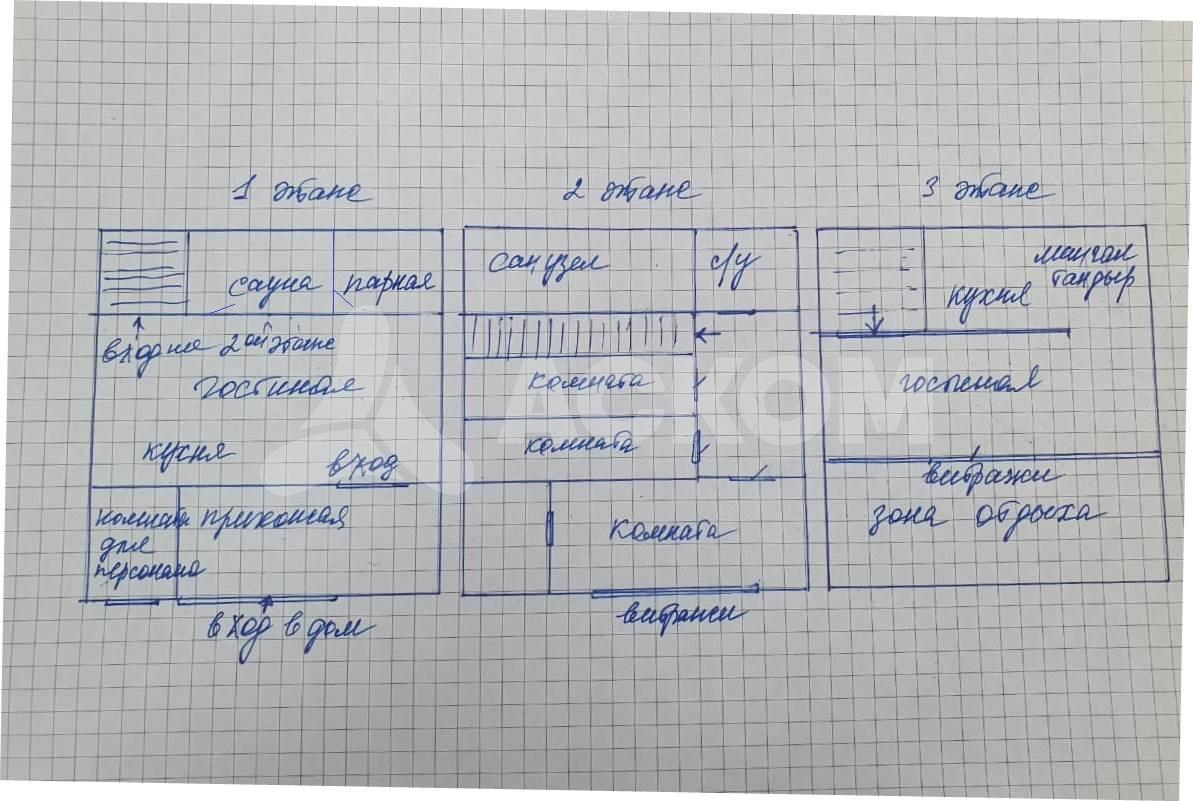 1 этаже
сауна парная
вход на 2ой этаже
гостиная
кухня
вход
комната
для
персонала
прихожая
вход в дом
2 этаже
санузел с/у
комната
комната
комната
витражи
3 этаже
мангал
тандыр
кухня
гостиная
витражи
зона отдыха
АСКОМ